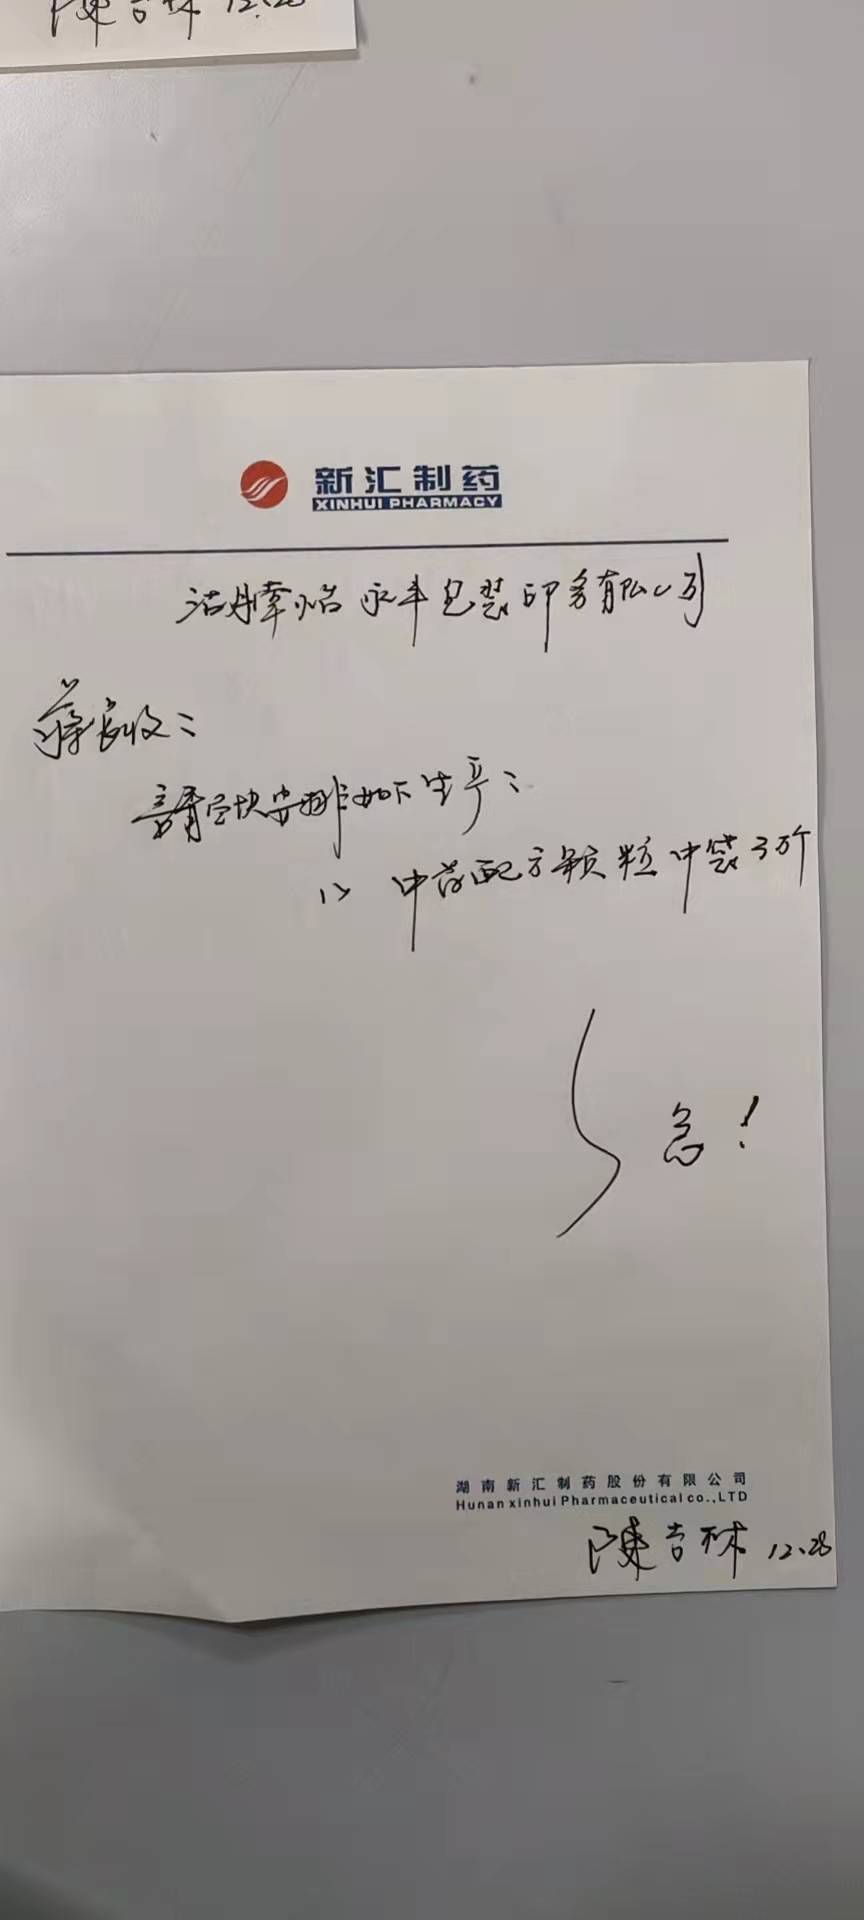 陳吉林 12.28
新汇制药
XINHUI PHARMACY
永丰包装印务有限公司
蒋 收:
請尽快安排如下生产:
1> 中药配方颗粒中袋3万个
急!
湖南新汇制药股份有限公司
Hunan xinhui Pharmaceutical co.,LTD
陳吉林 12.28